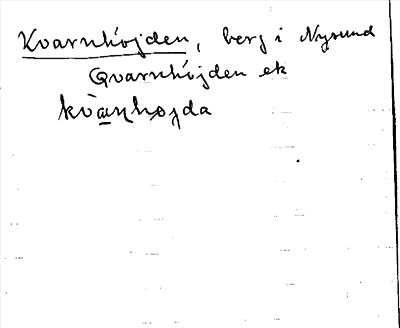 Kvarnhöjden, berg i Nysund
Qvarnhöjden ek
kvànhojda